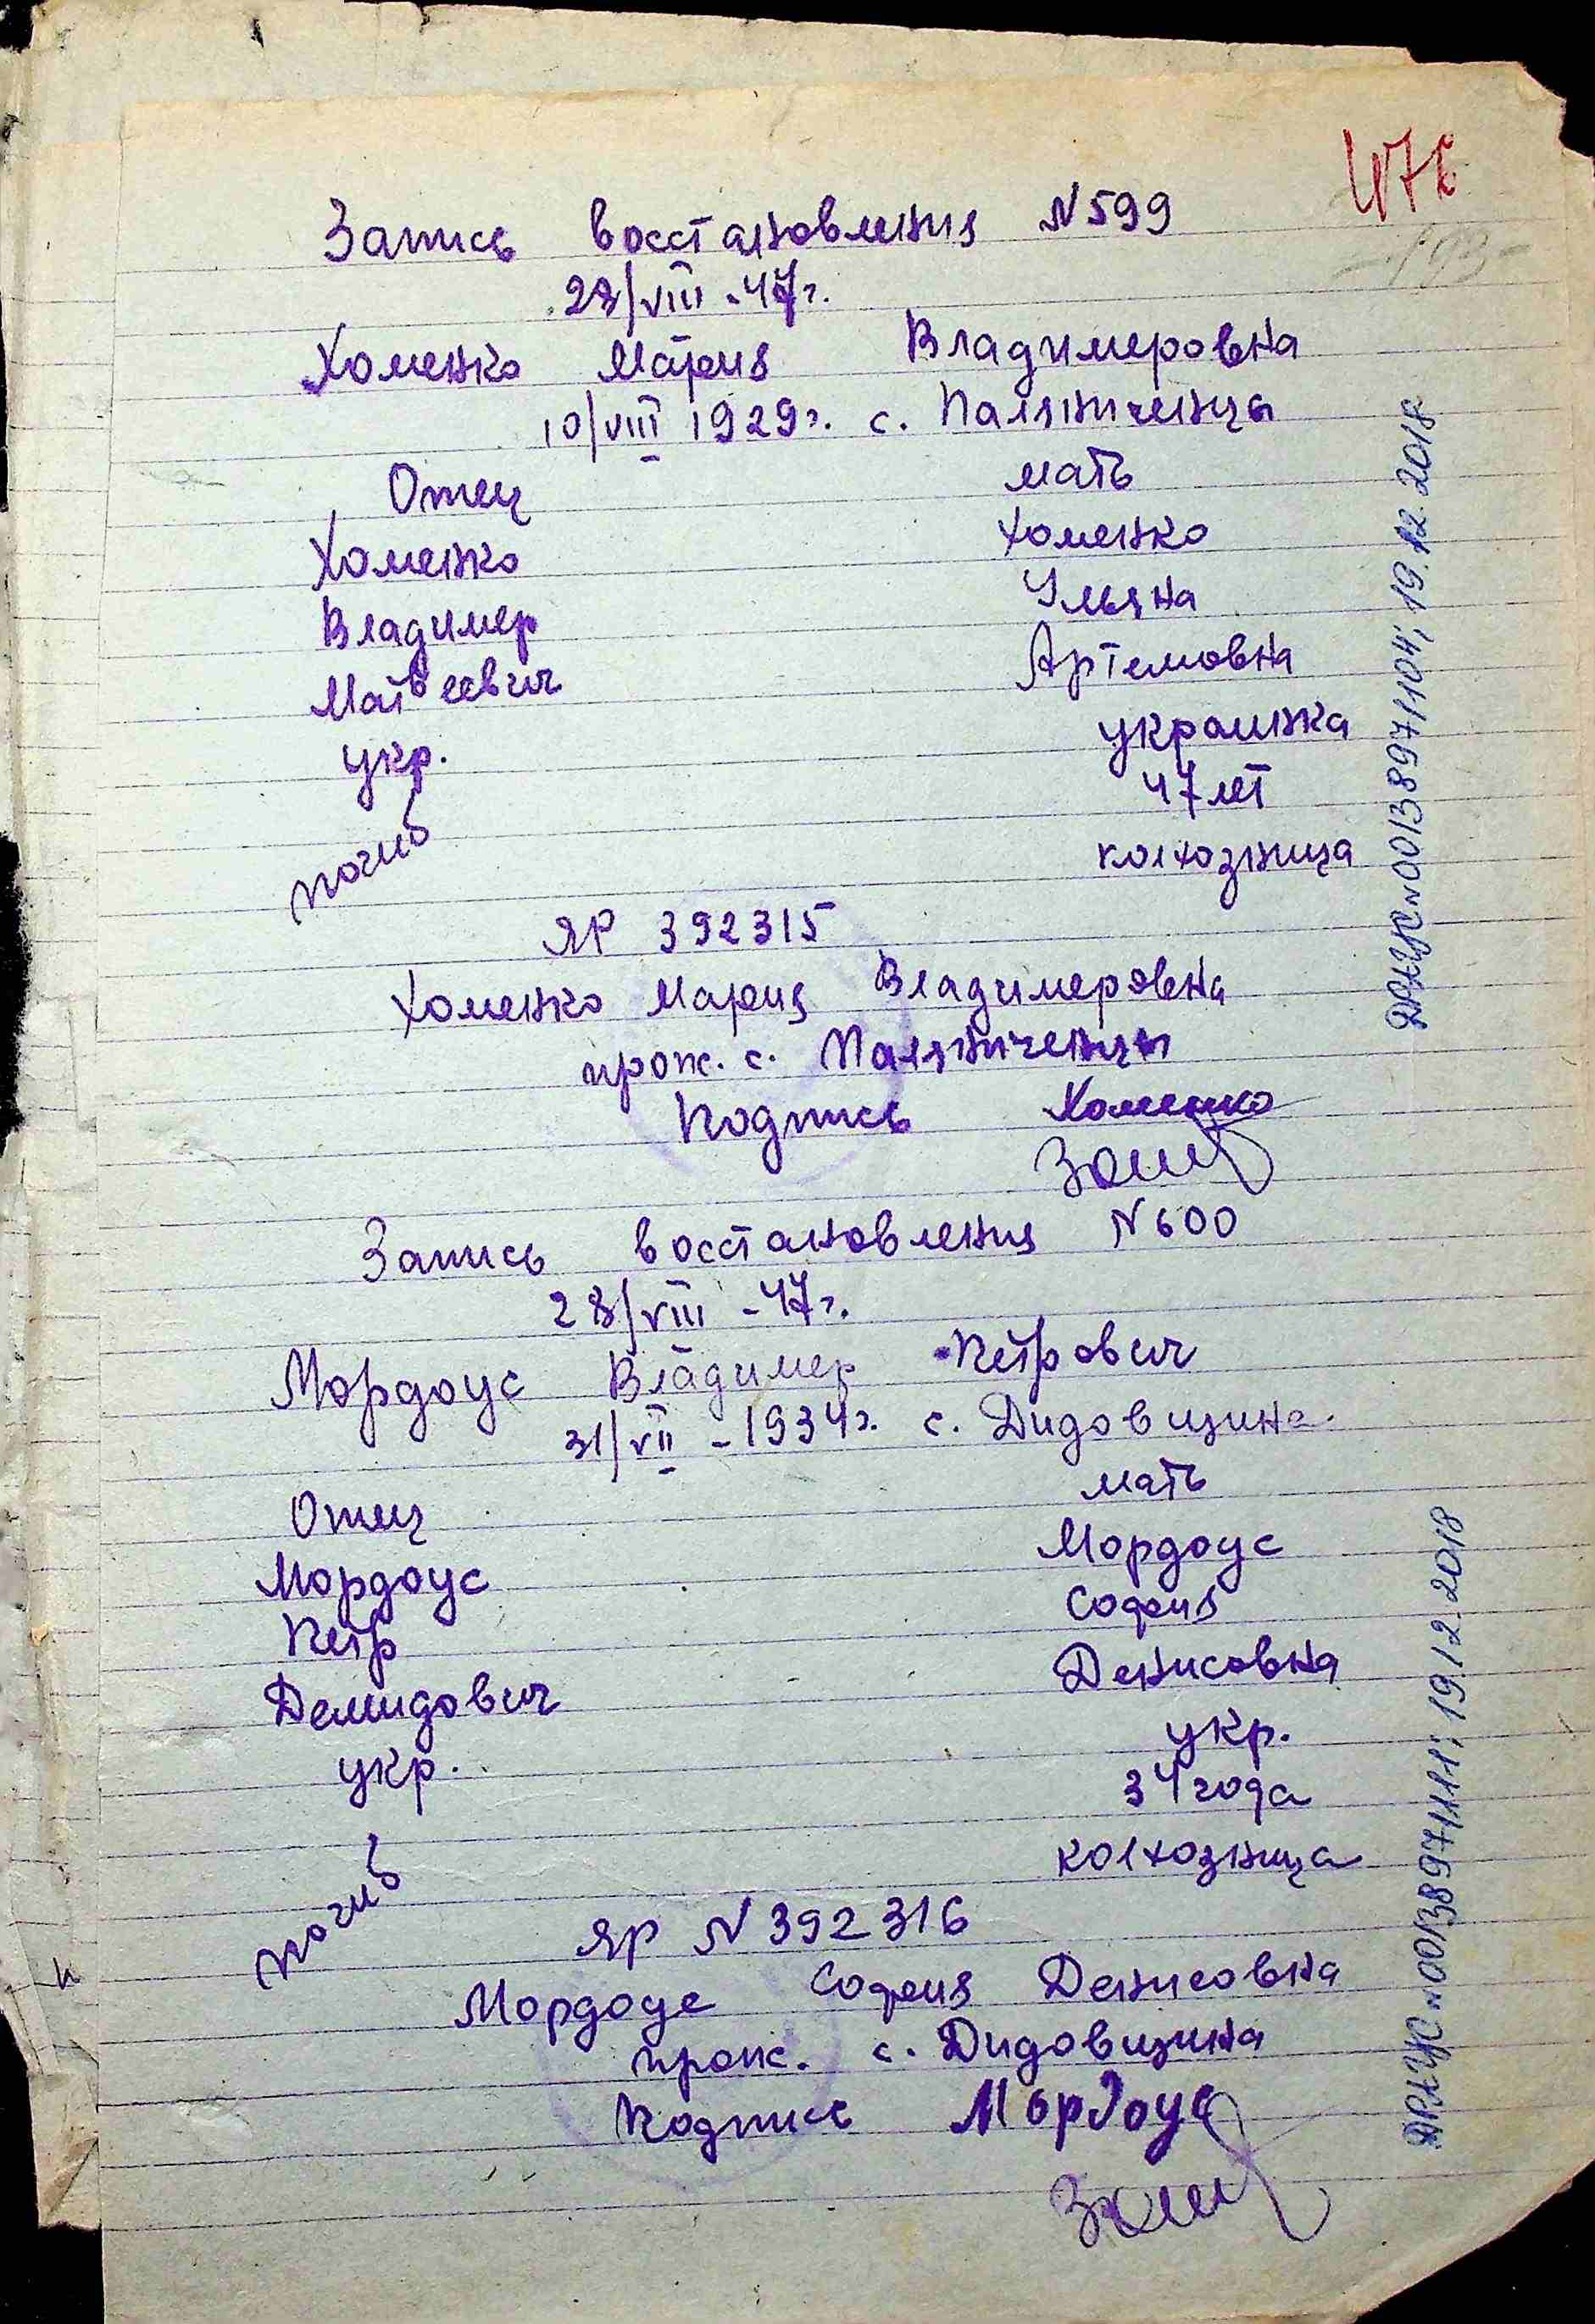 476
-193-
Запись восстановления N599
28/VIII-47г.
Хоменко Мария Владимеровна
10/VIII 1929г. с. Паляничинцы
Отец мать
Хоменко Хоменко
Владимер Ульяна
Матвеевич Артемовна
укр. украинка
погиб 47 лет
колхозница
ЯР 392315
Хоменко Мария Владимеровна
прож. с. Паляниченцы
Подпись Хоменко
Запись восстановления N600
28/VIII-47г.
Мордоус Владимер Петрович
31/VII-1934г. с. Дидовщина.
Отец мать
Мордоус Мордоус
Петр София
Демидович Денисовна
укр. укр.
34 года
погиб колхозница
ЯР N392316
Мордоус София Денисовна
прож. с. Дидовщина
Подпись Мордоус
ДРАЦС №00138971104; 19.12.2018
ДРАЦС №00138971111; 19.12.2018